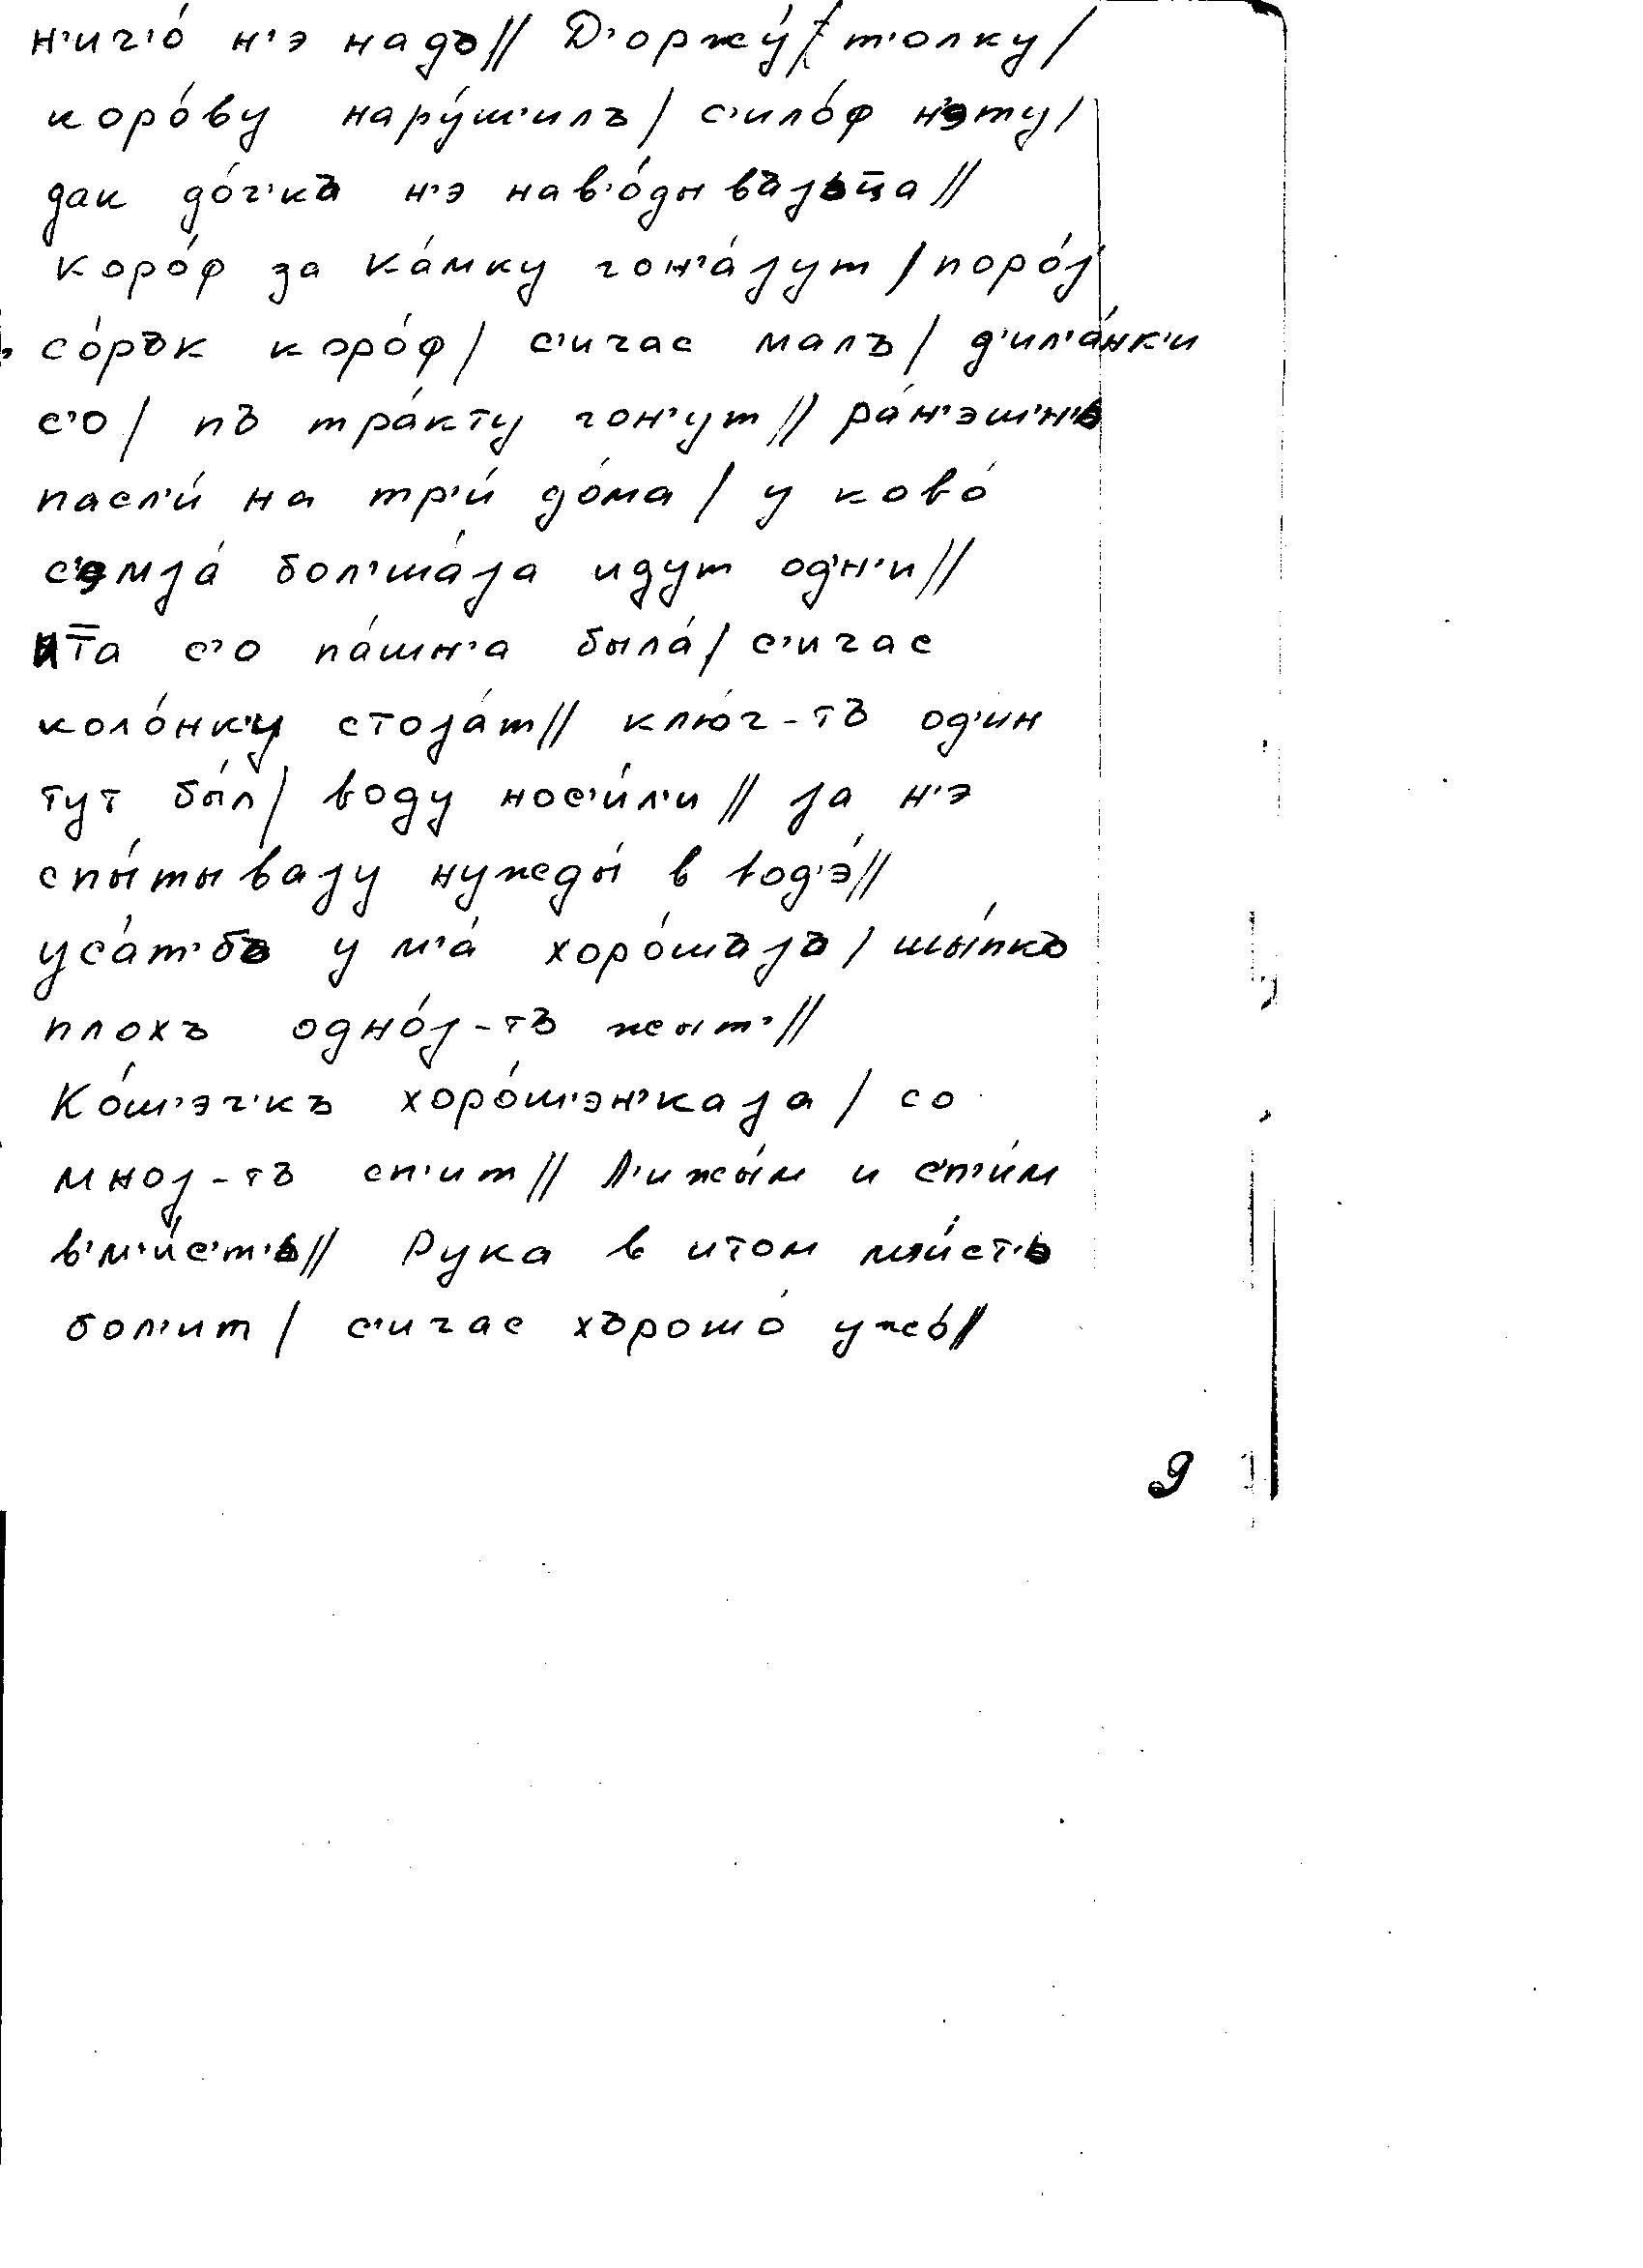 н'ич'о́ н'э надъ// Д'оржу́/ т'олку/
коро́ву нару́ш'илъ/ с'ило́ф н'эту/
дак до́ч'къ н'э нав'о́дывъjьц̄а//
коро́ф за Ка́мку гон'а́jут / поро́j
со́рък коро́ф/ с'ичас малъ/ д'ил'а́нк'и
с'о/ пъ тра́кту гон'ут// ра́н'эш'н'ь
пасл'и́ на тр'и́ до́ма/ у ково́
с'эмjа́ бол'ша́jа идут од'н'и//
ит̄а с'о па́шн'а была́/ с'ичас
коло́нк'и стоjа́т// клю́ч-тъ од'ин
тут бы́л/ воду нос'и́л'и// jа н'э
спы́тываjу нужды́ в вод'э́//
уса́т'бъ у м'а́ хоро́шъjъ/ шы́пкъ
плохъ одно́j-тъ жыт'//
Ко́ш'эч'къ хоро́ш'эн'каjа/ со
мноj-тъ сп'ит// Л'ижы́м и с'п'и́м
в'м'и́с'т'ь// Рука в итом м'и́ст'ь
бол'ит/ с'ичас хърошо́ ужо́//
9